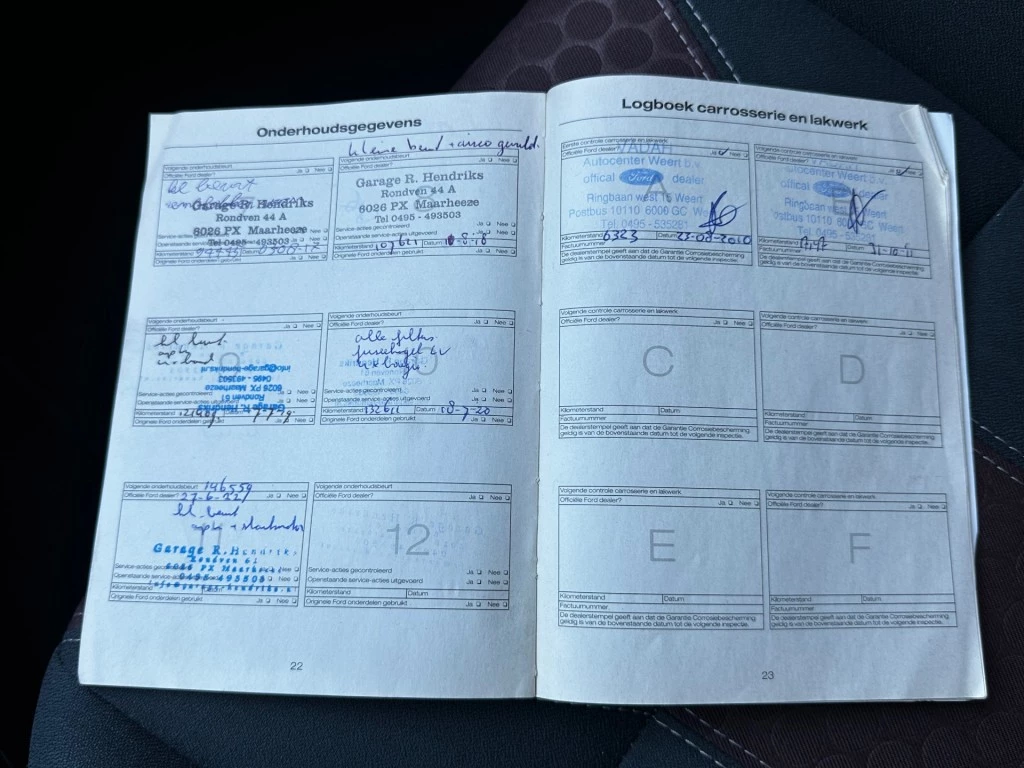 Onderhoudsgegevens
kleine beurt + airco gevuld.
Volgende onderhoudsbeurt
Officiële Ford dealer? Ja Nee
kl beurt
Garage R. Hendriks
Rondven 44 A
6026 PX Maarheeze
Tel 0495 - 493503
Kilometerstand Datum
Originele Ford onderdelen gebruikt Ja Nee
Volgende onderhoudsbeurt
Officiële Ford dealer? Ja Nee
Garage R. Hendriks
Rondven 44 A
6026 PX Maarheeze
Tel 0495 - 493503
Service-acties gecontroleerd
Openstaande service-acties uitgevoerd
Kilometerstand 107621 Datum 10-8-18
Originele Ford onderdelen gebruikt Ja Nee
Volgende onderhoudsbeurt
Officiële Ford dealer? Ja Nee
kl beurt
info@garage-hendriks.nl
0495 - 493503
6026 PX Maarheeze
Rondven 61
Garage R. Hendriks
Service-acties gecontroleerd Ja Nee
Openstaande service-acties Ja Nee
Kilometerstand
Originele Ford onderdelen gebruikt Ja Nee
Volgende onderhoudsbeurt
Officiële Ford dealer? Ja Nee
alle filters
Service-acties gecontroleerd Ja Nee
Openstaande service-acties uitgevoerd Ja Nee
Kilometerstand 132611 Datum 18-7-20
Originele Ford onderdelen gebruikt Ja Nee
Volgende onderhoudsbeurt 146559
Officiële Ford dealer? 27-6-22 Ja Nee
kl beurt
11
Garage R. Hendriks
Rondven 61
6026 PX Maarheeze
0495-493503
info@garage-hendriks.nl
Kilometerstand
Originele Ford onderdelen gebruikt Ja Nee
Volgende onderhoudsbeurt
Officiële Ford dealer? Ja Nee
12
Service-acties gecontroleerd Ja Nee
Openstaande service-acties uitgevoerd Ja Nee
Kilometerstand Datum
Originele Ford onderdelen gebruikt Ja Nee
22
Logboek carrosserie en lakwerk
Eerste controle carrosserie en lakwerk
Officiële Ford dealer? Ja Nee
A
Autocenter Weert b.v.
offical Ford dealer
Ringbaan west 15 Weert
Postbus 10110 6000 GC Weert
Tel. 0495 - 535281
Kilometerstand 6323 Datum 23-08-2010
Factuurnummer
De dealerstempel geeft aan dat de Garantie Corrosiebescherming
geldig is van de bovenstaande datum tot de volgende inspectie.
Volgende controle carrosserie en lakwerk
Officiële Ford dealer? Ja Nee
Autocenter Weert b.v.
offical Ford dealer
Ringbaan west 15 Weert
Postbus 10110 6000 GC Weert
Kilometerstand Datum 31-10-11
Factuurnummer
De dealerstempel geeft aan dat de Garantie Corrosiebescherming
geldig is van de bovenstaande datum tot de volgende inspectie.
Volgende controle carrosserie en lakwerk
Officiële Ford dealer? Ja Nee
C
Kilometerstand Datum
Factuurnummer
De dealerstempel geeft aan dat de Garantie Corrosiebescherming
geldig is van de bovenstaande datum tot de volgende inspectie.
Volgende controle carrosserie en lakwerk
Officiële Ford dealer? Ja Nee
D
Kilometerstand Datum
Factuurnummer
De dealerstempel geeft aan dat de Garantie Corrosiebescherming
geldig is van de bovenstaande datum tot de volgende inspectie.
Volgende controle carrosserie en lakwerk
Officiële Ford dealer? Ja Nee
E
Kilometerstand Datum
Factuurnummer
De dealerstempel geeft aan dat de Garantie Corrosiebescherming
geldig is van de bovenstaande datum tot de volgende inspectie.
Volgende controle carrosserie en lakwerk
Officiële Ford dealer? Ja Nee
F
Kilometerstand Datum
Factuurnummer
De dealerstempel geeft aan dat de Garantie Corrosiebescherming
geldig is van de bovenstaande datum tot de volgende inspectie.
23